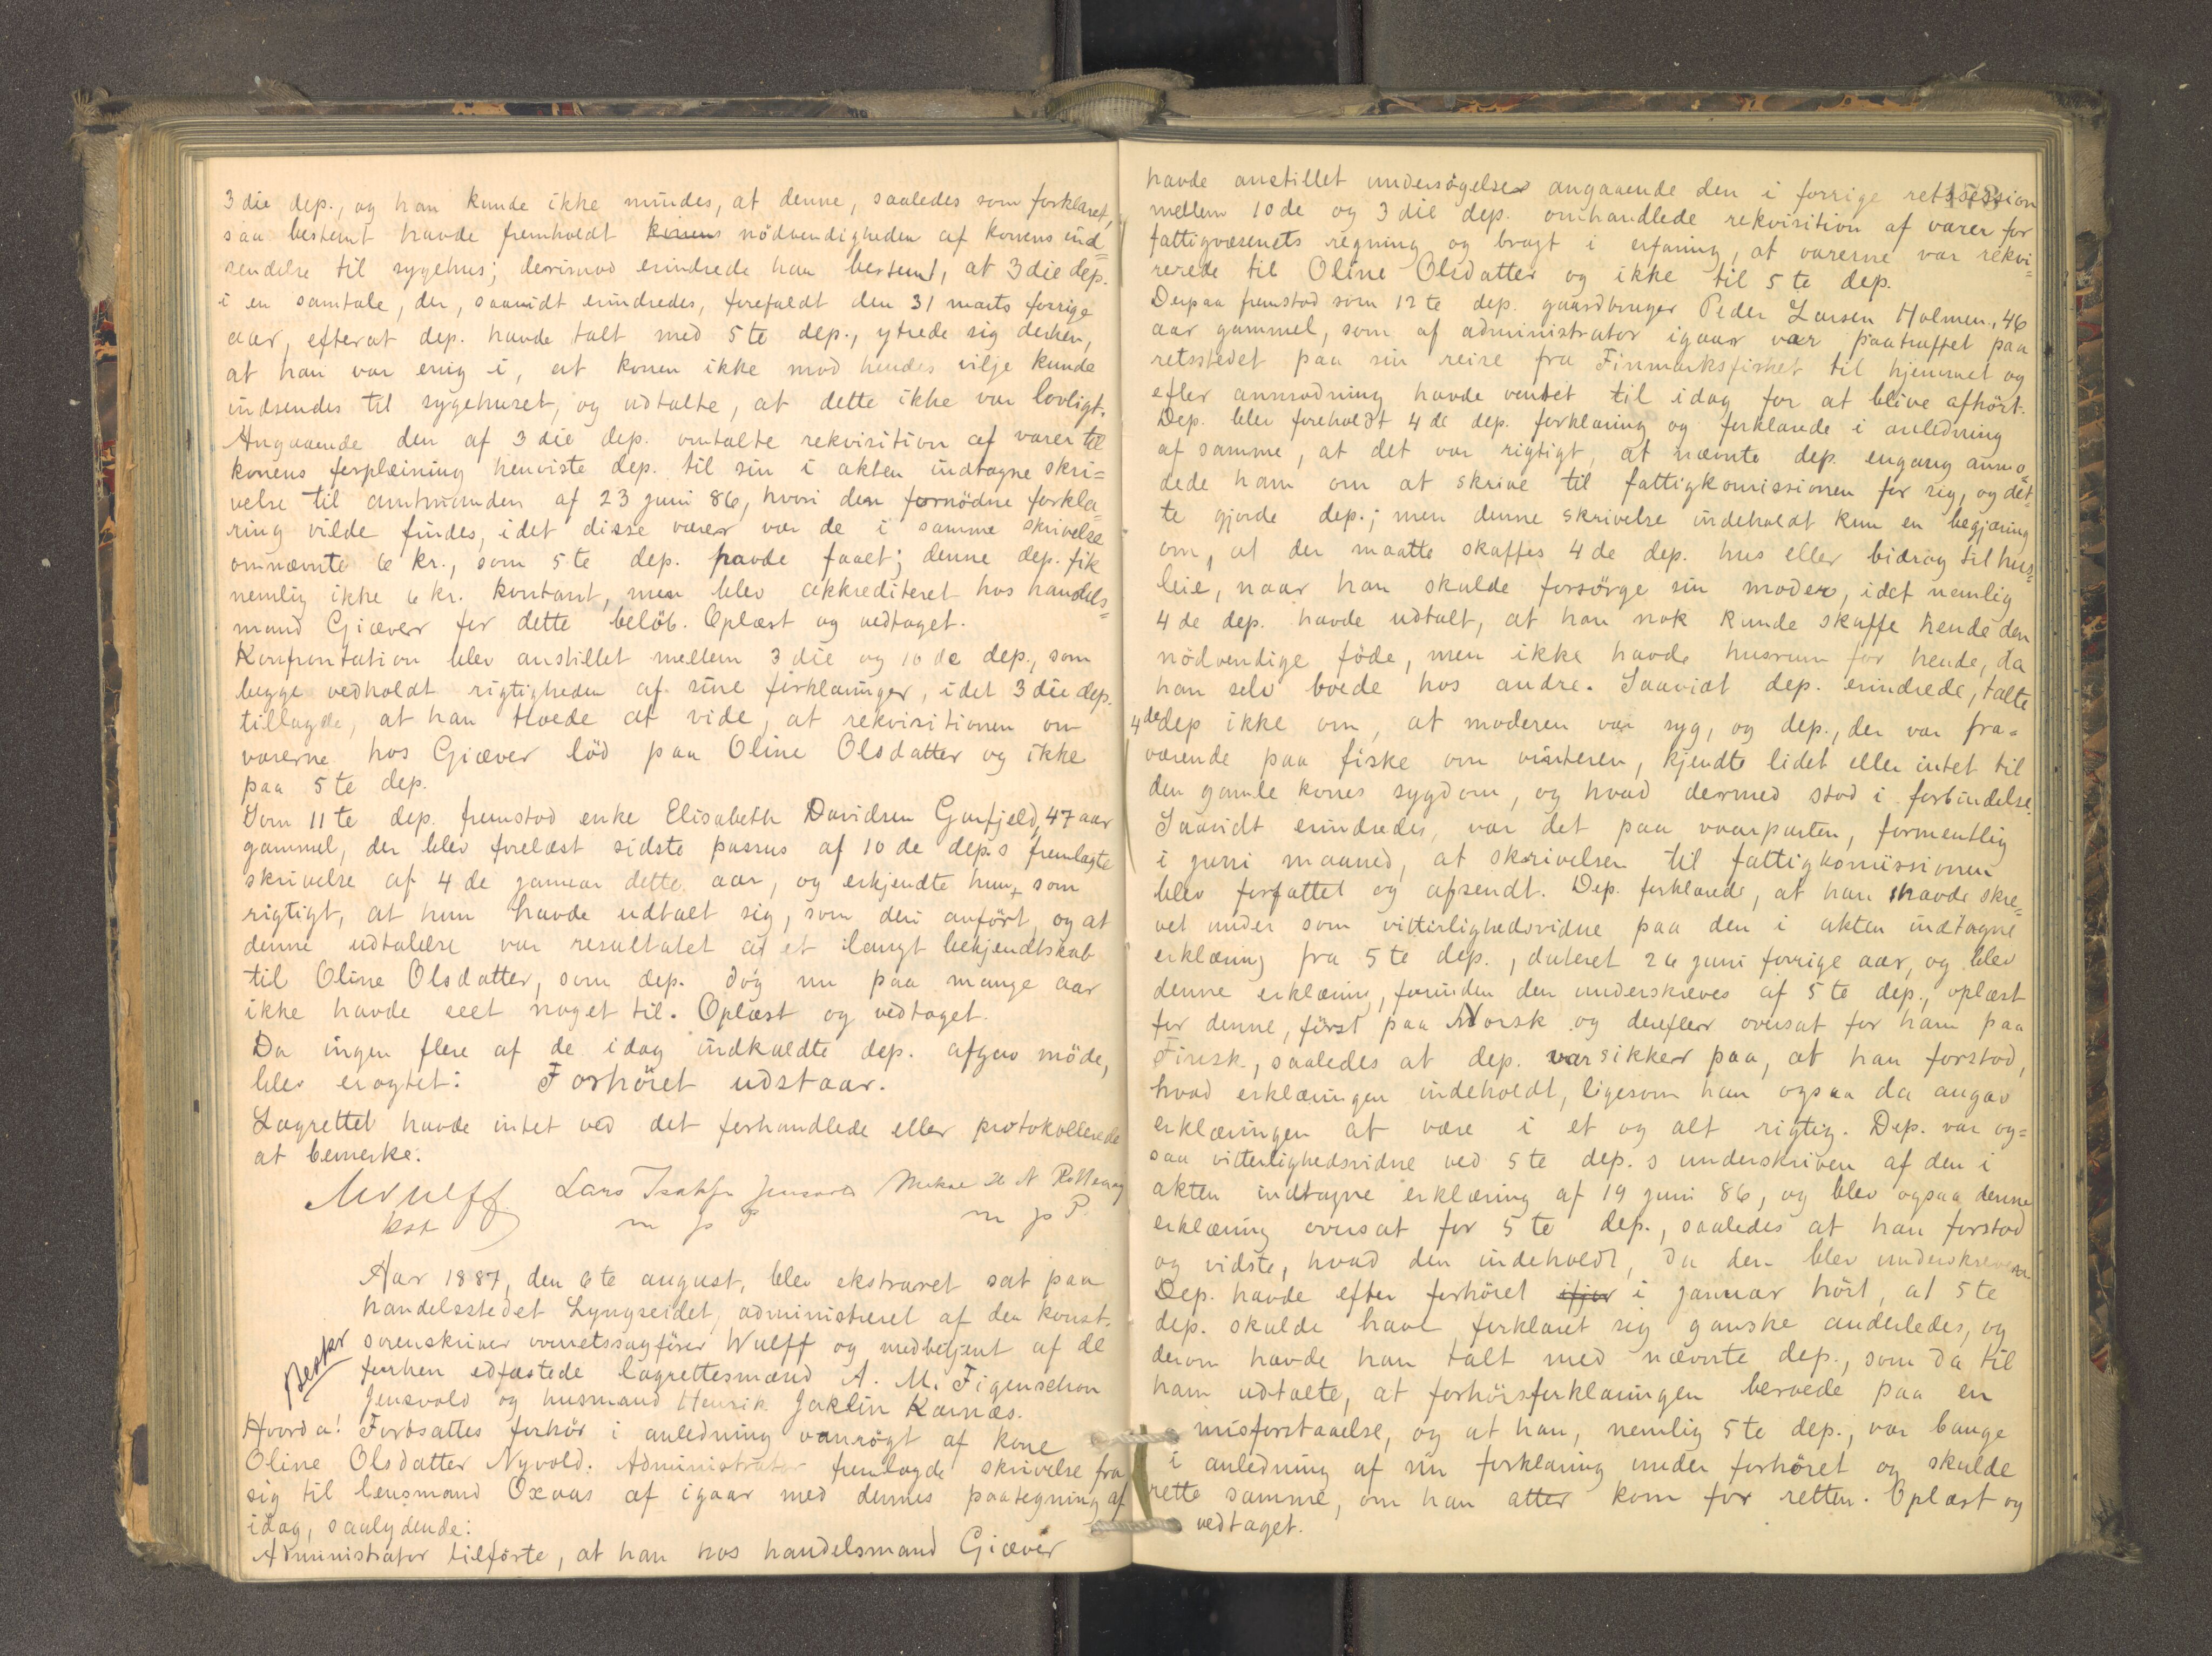 3die dep., og han kunde ikke mindes, at denne, saaledes som forklaret,
saa bestemt havde fremholdt konens nödvendigheden af konens ind=
sendelse til sygehus; derimod erindrede han bestemt, at 3die dep.
i en samtale, der, saavidt erindredes, forefaldt den 31 marts forrige
aar, efterat dep. havde talt med 5te dep., ytrede sig derhen,
at han var enig i, at konen ikke mod hendes vilje kunde
indsendes til sygehuset, og udtalte, at dette ikke var lovligt.
Angaaende den af 3die dep. omtalte rekvisition af varer til
konens forpleining henviste dep. til sin i akten indtagne skri=
velse til amtmanden af 23 juni 86, hvori den fornödne forkla=
ring vilde findes, idet disse varer var de i samme skrivelse
omnævnte 6 kr., som 5te dep. havde faaet; denne dep. fik
nemlig ikke 6 kr. kontant, men blev akkrediteret hos handels=
mand Giæver for dette belöb. Oplæst og vedtaget.
Konfrontation blev anstillet mellem 3die og 10de dep., som
begge vedholdt rigtigheden af sine forklaringer, idet 3die dep.
tillagde, at han troede at vide, at rekvisitionen om
varerne hos Giæver löd paa Oline Olsdatter og ikke
paa 5te dep.
Som 11te dep. fremstod enke Elisabeth Davidsen Garfjeld, 47 aar
gammel, der blev forelæst sidste passus af 10de dep.s fremlagte
skrivelse af 4de januar dette aar, og erkjendte hun, som
rigtigt, at hun havde udtalt sig, som deri anfört, og at
denne udtalelse var resultatet af et langt bekjendtskab
til Oline Olsdatter, som dep. dog nu paa mange aar
ikke havde seet noget til. Oplæst og vedtaget.
Da ingen flere af de idag indkaldte dep. afgav möde,
blev eragtet: Forhöret udstaar.
Lagrettet havde intet ved det forhandlede eller protokollerede
at bemerke.
Wulff Lars Isaksen Jensvold
kst m p P m p P.
Aar 1887, den 6te august, blev ekstraret sat paa
handelsstedet Lyngseidet, administreret af den konst.
sorenskriver overretssagförer Wulff og medbetjent af de
forhen edfæstede lagrettesmænd A. M. Figenschou
Jensvold og husmand Henrik Jaklin Karnæs.
Hvorda! Fortsattes forhör i anledning vanrögt af kone
Oline Olsdatter Nyvold. Administrator fremlagde skrivelse fra
sig til lensmand Oxaas af igaar med dennes paategning af
idag, saalydende:
Administrator tilförte, at han hos handelsmand Giæver
havde anstillet undersögelse angaaende den i forrige retssession
mellem 10de og 3die dep. omhandlede rekvisition af varer for
fattigvæsenets regning og bragt i erfaring, at varerne var rekvi=
rerede til Oline Olsdatter og ikke til 5te dep.
Derpaa fremstod som 12te dep. gaardbruger Peder Larsen Holmen, 46
aar gammel, som af administrator igaar var paatruffet paa
retsstedet paa sin reise fra Finmarksfisket til hjemmet og
efter anmodning havde ventet til idag for at blive afhört.
Dep. blev foreholdt 4de dep. forklaring og forklarede i anledning
af samme, at det var rigtigt, at nævnte dep. engang anmo=
dede ham om at skrive til fattigkomissionen for sig, og det=
te gjorde dep.; men denne skrivelse indeholdt kun en begjæring
om, at der maatte skaffes 4de dep. hus eller bidrag til hus=
leie, naar han skulde forsörge sin moder, idet nemlig
4de dep. havde udtalt, at han nok kunde skaffe hende den
nödvendige föde, men ikke havde husrum for hende, da
han selv boede hos andre. Saavidt dep. erindrede, talte
4de dep ikke om, at moderen var syg, og dep., der var fra=
værende paa fiske om vinteren, kjendte lidet eller intet til
den gamle kones sygdom, og hvad dermed stod i forbindelse.
Saavidt erindredes, var det paa vaarparten, formentlig
i juni maaned, at skrivelsen til fattigkomissionen
blev forfattet og afsendt. Dep. forklarede, at han havde skre=
vet under som vitterlighedsvidne paa den i akten indtagne
erklæring fra 5te dep., dateret 26 juni forrige aar, og blev
denne erklæring, forinden den underskreves af 5te dep., oplæst
for denne, först paa Norsk og derefter oversat for ham paa
Finsk, saaledes at dep. var sikker paa, at han forstod,
hvad erklæringen indeholdt, ligesom han ogsaa da angav
erklæringen at være i et og alt rigtig. Dep. var og=
saa vitterlighedsvidne ved 5te dep.s underskriven af den i
akten indtagne erklæring af 19 juni 86, og blev ogsaa denne
erklæring oversat for 5te dep., saaledes at han forstod
og vidste, hvad den indeholdt, da den blev underskreven.
Dep. havde efter forhöret ifjor i januar hört, at 5te
dep. skulde have forklaret sig ganske anderledes, og
derom havde han talt med nævnte dep., som da til
ham udtalte, at forhörsforklaringen beroede paa en
misforstaaelse, og at han, nemlig 5te dep., var bange
i anledning af sin forklaring under forhöret og skulde
rette samme, om han atter kom for retten. Oplæst og
vedtaget.